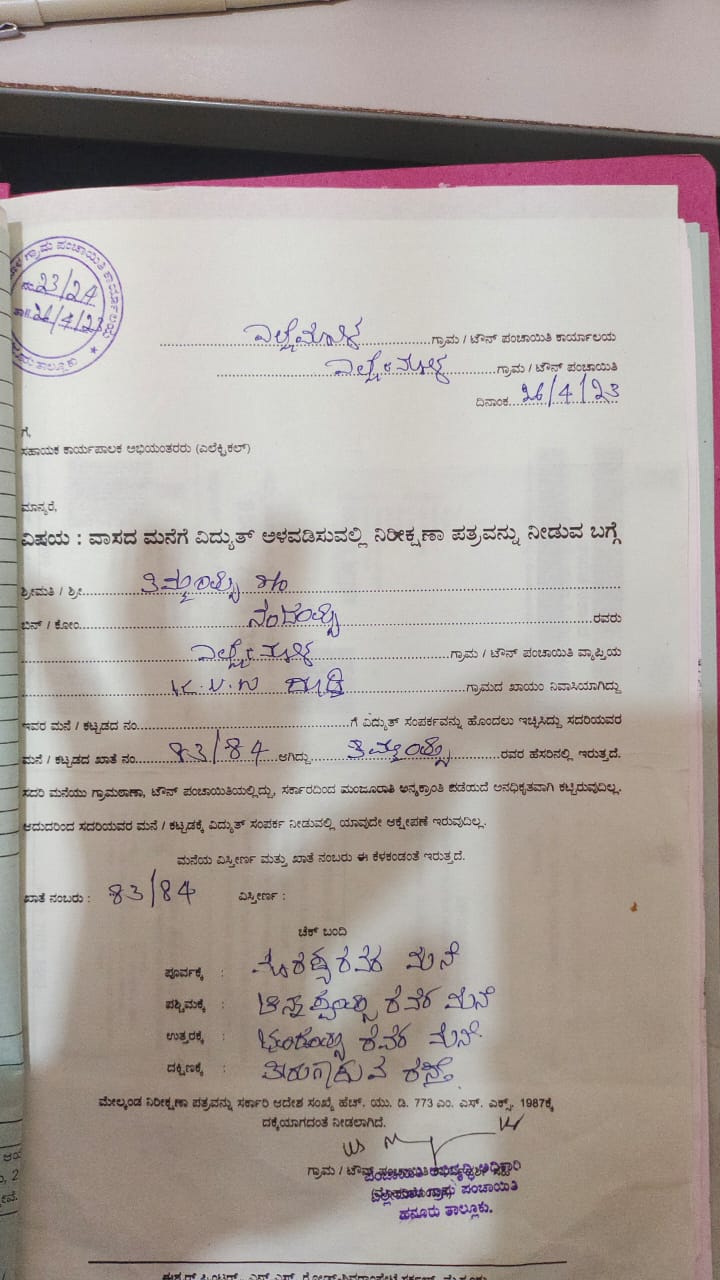 ಗ್ರಾಮ ಪಂಚಾಯಿತಿ ಕಾರ್ಯಾಲಯ
ನಂ 23/24
ತಾ 26/4/23
ತಾಲ್ಲೂಕು ★
ಎಲ್ಲೇಮಾಳ ಗ್ರಾಮ / ಟೌನ್ ಪಂಚಾಯಿತಿ ಕಾರ್ಯಾಲಯ
ಎಲ್ಲೇಮಾಳ ಗ್ರಾಮ / ಟೌನ್ ಪಂಚಾಯಿತಿ
ದಿನಾಂಕ 26/4/23
ಗೆ,
ಸಹಾಯಕ ಕಾರ್ಯಪಾಲಕ ಅಭಿಯಂತರರು (ಎಲೆಕ್ಟ್ರಿಕಲ್)
ಮಾನ್ಯರೆ,
ವಿಷಯ : ವಾಸದ ಮನೆಗೆ ವಿದ್ಯುತ್ ಅಳವಡಿಸುವಲ್ಲಿ ನಿರೀಕ್ಷಣಾ ಪತ್ರವನ್ನು ನೀಡುವ ಬಗ್ಗೆ
ಶ್ರೀಮತಿ / ಶ್ರೀ ತಿಮ್ಮಯ್ಯ S/o
ಬಿನ್ / ಕೋಂ ನಂಜಯ್ಯ ರವರು
ಎಲ್ಲೇಮಾಳ ಗ್ರಾಮ / ಟೌನ್ ಪಂಚಾಯಿತಿ ವ್ಯಾಪ್ತಿಯ
K.V.N ದೊಡ್ಡಿ ಗ್ರಾಮದ ಖಾಯಂ ನಿವಾಸಿಯಾಗಿದ್ದು
ಇವರ ಮನೆ / ಕಟ್ಟಡದ ನಂ. ಗೆ ವಿದ್ಯುತ್ ಸಂಪರ್ಕವನ್ನು ಹೊಂದಲು ಇಚ್ಛಿಸಿದ್ದು ಸದರಿಯವರ
ಮನೆ / ಕಟ್ಟಡದ ಖಾತೆ ನಂ. 83/84 ಆಗಿದ್ದು ತಿಮ್ಮಯ್ಯ ರವರ ಹೆಸರಿನಲ್ಲಿ ಇರುತ್ತದೆ.
ಸದರಿ ಮನೆಯು ಗ್ರಾಮಠಾಣಾ, ಟೌನ್ ಪಂಚಾಯಿತಿಯಲ್ಲಿದ್ದು, ಸರ್ಕಾರದಿಂದ ಮಂಜೂರಾತಿ ಅನ್ಯಕ್ರಾಂತಿ ಪಡೆಯದೆ ಅನಧಿಕೃತವಾಗಿ ಕಟ್ಟಿರುವುದಿಲ್ಲ.
ಆದುದರಿಂದ ಸದರಿಯವರ ಮನೆ / ಕಟ್ಟಡಕ್ಕೆ ವಿದ್ಯುತ್ ಸಂಪರ್ಕ ನೀಡುವಲ್ಲಿ ಯಾವುದೇ ಆಕ್ಷೇಪಣೆ ಇರುವುದಿಲ್ಲ.
ಮನೆಯ ವಿಸ್ತೀರ್ಣ ಮತ್ತು ಖಾತೆ ನಂಬರು ಈ ಕೆಳಕಂಡಂತೆ ಇರುತ್ತದೆ.
ಖಾತೆ ನಂಬರು : 83/84 ವಿಸ್ತೀರ್ಣ :
ಚೆಕ್ ಬಂದಿ
ಪೂರ್ವಕ್ಕೆ : ರವರ ಮನೆ
ಪಶ್ಚಿಮಕ್ಕೆ : ರವರ ಮನೆ
ಉತ್ತರಕ್ಕೆ : ರವರ ಮನೆ
ದಕ್ಷಿಣಕ್ಕೆ : ತಿರುಗಾಡುವ ರಸ್ತೆ
ಮೇಲ್ಕಂಡ ನಿರೀಕ್ಷಣಾ ಪತ್ರವನ್ನು ಸರ್ಕಾರಿ ಆದೇಶ ಸಂಖ್ಯೆ ಹೆಚ್. ಯು. ಡಿ. 773 ಎಂ. ಎಸ್. ಎಕ್ಸ್. 1987ಕ್ಕೆ
ದಕ್ಕೆಯಾಗದಂತೆ ನೀಡಲಾಗಿದೆ.
ಗ್ರಾಮ / ಟೌನ್
ಪಂಚಾಯಿತಿ ಅಭಿವೃದ್ಧಿ ಅಧಿಕಾರಿ
ಎಲ್ಲೇಮಾಳ ಗ್ರಾಮ ಪಂಚಾಯಿತಿ
ಹನೂರು ತಾಲ್ಲೂಕು.